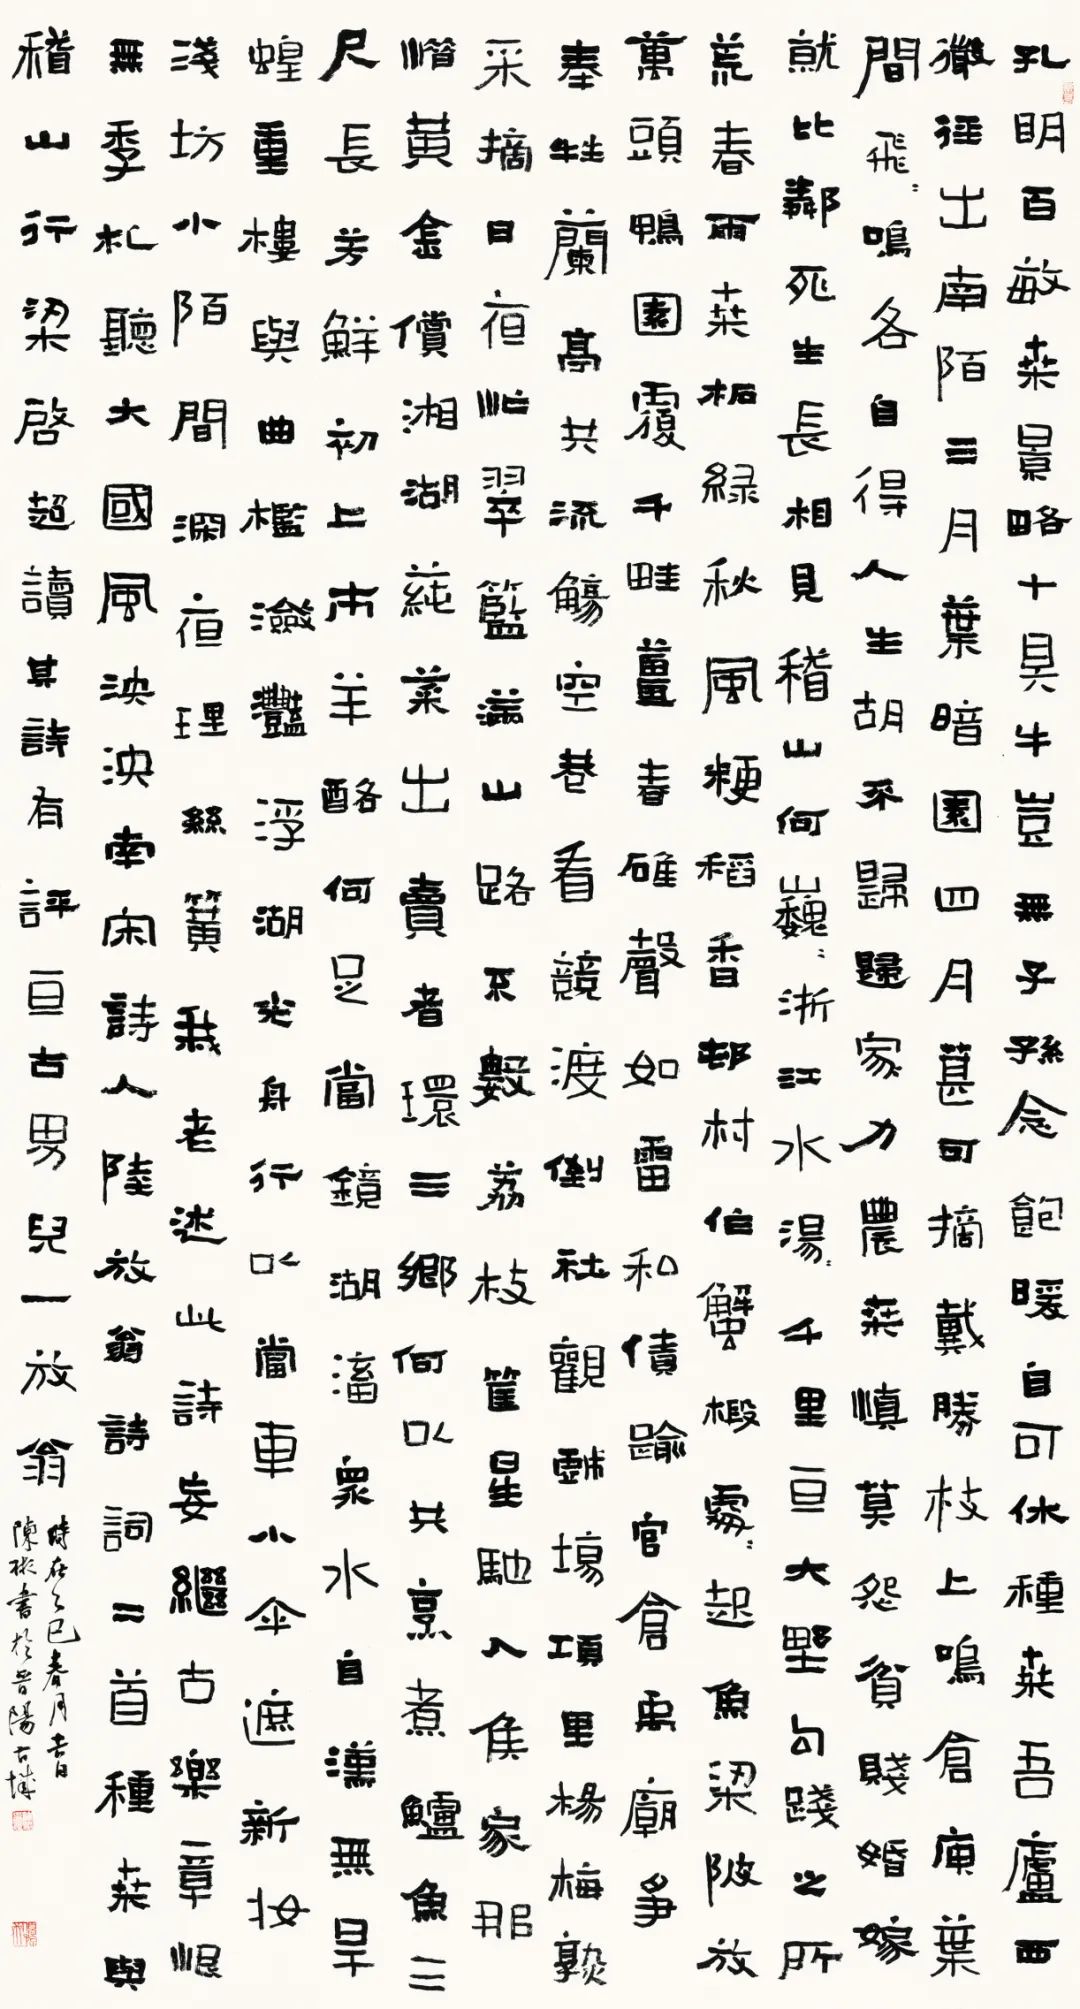 孔明百畝桑景略十具牛豈無子孫念飽暖自可休種桑吾廬西
微徑出南陌三月葉暗園四月葚可摘戴勝枝上鳴倉庚葉
間飛〻鳴各自得人生胡不歸歸家力農桑慎莫怨貧賤婚嫁
就比鄰死生長相見稽山何巍〻浙江水湯〻千里亘大野勾踐之所
荒春雨桑柘綠秋風粳稻香邨村作蟹椴處〻起魚梁陂放
萬頭鴨園覆千畦薑舂碓聲如雷私債踰官倉禹廟爭
奉牲蘭亭共流觴空巷看競渡倒社觀戲場項里楊梅熟
采摘日夜忙翠籃滿山路不數荔枝筐星馳入侯家那
惜黃金償湘湖蒓菜出賣者環三鄉何以共烹煮鱸魚三
尺長芳鮮初上市羊酪何足當鏡湖滀衆水自漢無旱
蝗重樓與曲檻瀲灩浮湖光舟行以當車小傘遮新妝
淺坊小陌間深夜理絲簧我老述此詩妄繼古樂章恨
無季札聽大國風泱泱南宋詩人陸放翁詩詞二首種桑與
稽山行梁啓超讀其詩有評亘古男兒一放翁
時在乙巳春月吉日
陳彬書於晉陽古城